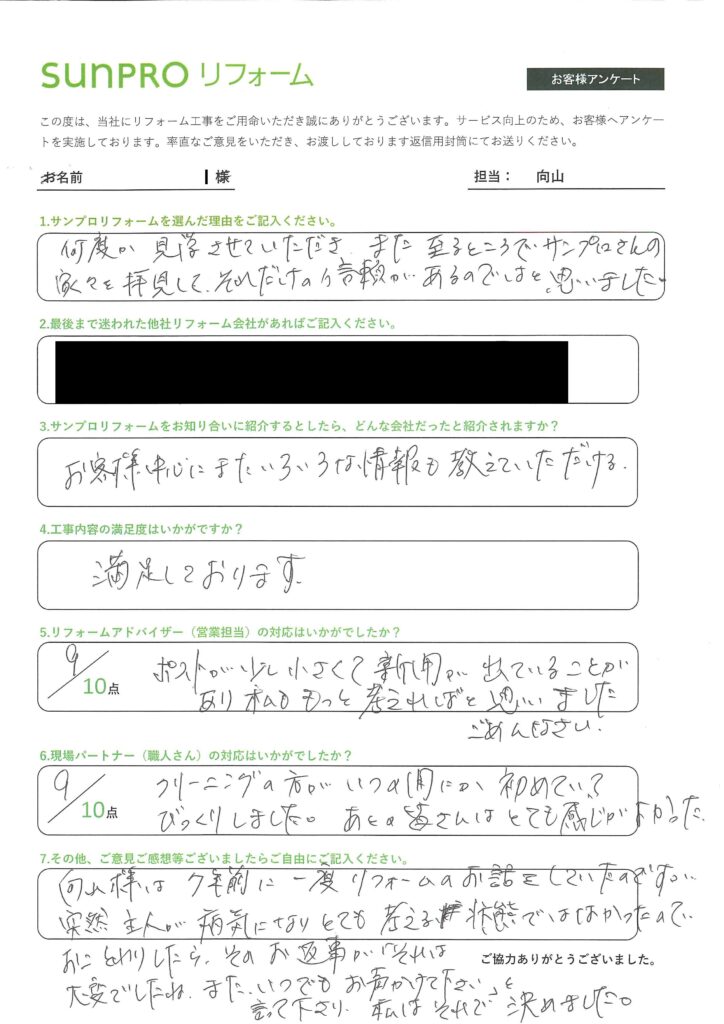 SUNPRO リフォーム
お客様アンケート
この度は、当社にリフォーム工事をご用命いただき誠にありがとうございます。サービス向上のため、お客様へアンケー
トを実施しております。率直なご意見をいただき、お渡ししております返信用封筒にてお送りください。
お名前 様 担当： 向山
1.サンプロリフォームを選んだ理由をご記入ください。
何度か見学させていただき、また至るところでサンプロさんの
家々を拝見して、それだけの信頼があるのではと思いました。
2.最後まで迷われた他社リフォーム会社があればご記入ください。
3.サンプロリフォームをお知り合いに紹介するとしたら、どんな会社だったと紹介されますか？
お客様中心にまたいろいろな情報も教えていただける。
4.工事内容の満足度はいかがですか？
満足しております。
5.リフォームアドバイザー（営業担当）の対応はいかがでしたか？
9/10点 ポストが少し小さくて新聞が出ていることが
あり私ももっと考えればと思いました
ごめんなさい。
6.現場パートナー（職人さん）の対応はいかがでしたか？
9/10点 クリーニングの方がいつの間にか初めていて
びっくりしました。あとの皆さんはとても感じがよかった
7.その他、ご意見ご感想等ございましたらご自由にご記入ください。
向山様は7年前に一度リフォームのお話をしていたのですが、
突然主人が病気になりとても考える状態ではなかったので
おことわりしたら、そのお返事が「それは
ご協力ありがとうございました。
大変でしたね、また、いつでもお声かけて下さい」と
言って下さり、私はそれで決めました。